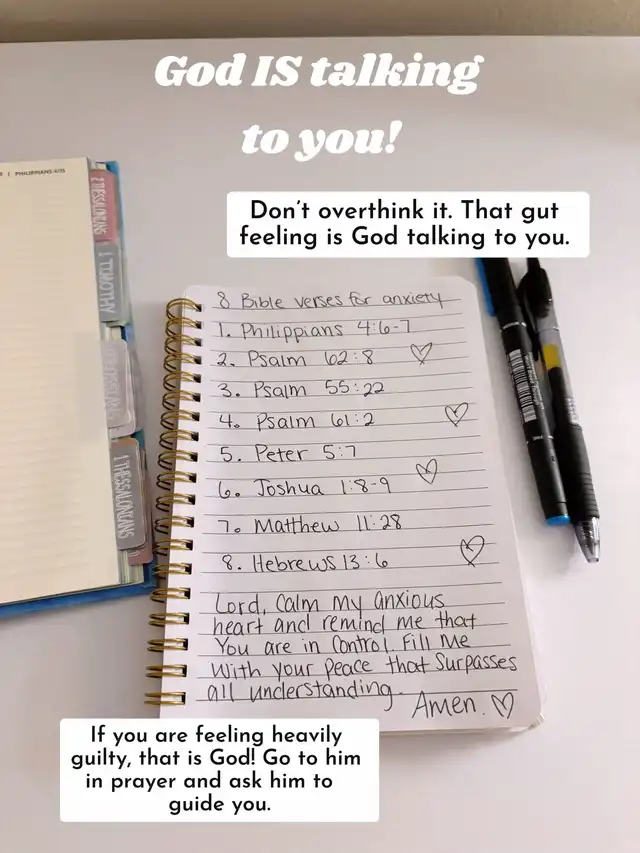 God IS talking
to you!
Don't overthink it. That gut
feeling is God talking to you.
PHILIPPIANS 4:15
2 THESSALONIANS
1 TIMOTHY
1 THESSALONIANS
8 Bible verses for anxiety
1. Philippians 4:6-7
2. Psalm 62:8
3. Psalm 55:22
4. Psalm 61:2
5. Peter 5:7
6. Joshua 1:8-9
7. Matthew 11:28
8. Hebrews 13:6
Lord, Calm my anxious
heart and remind me that
You are in Control. Fill Me
With your Peace that Surpasses
all understanding.
Amen.
If you are feeling heavily
guilty, that is God! Go to him
in prayer and ask him to
guide you.